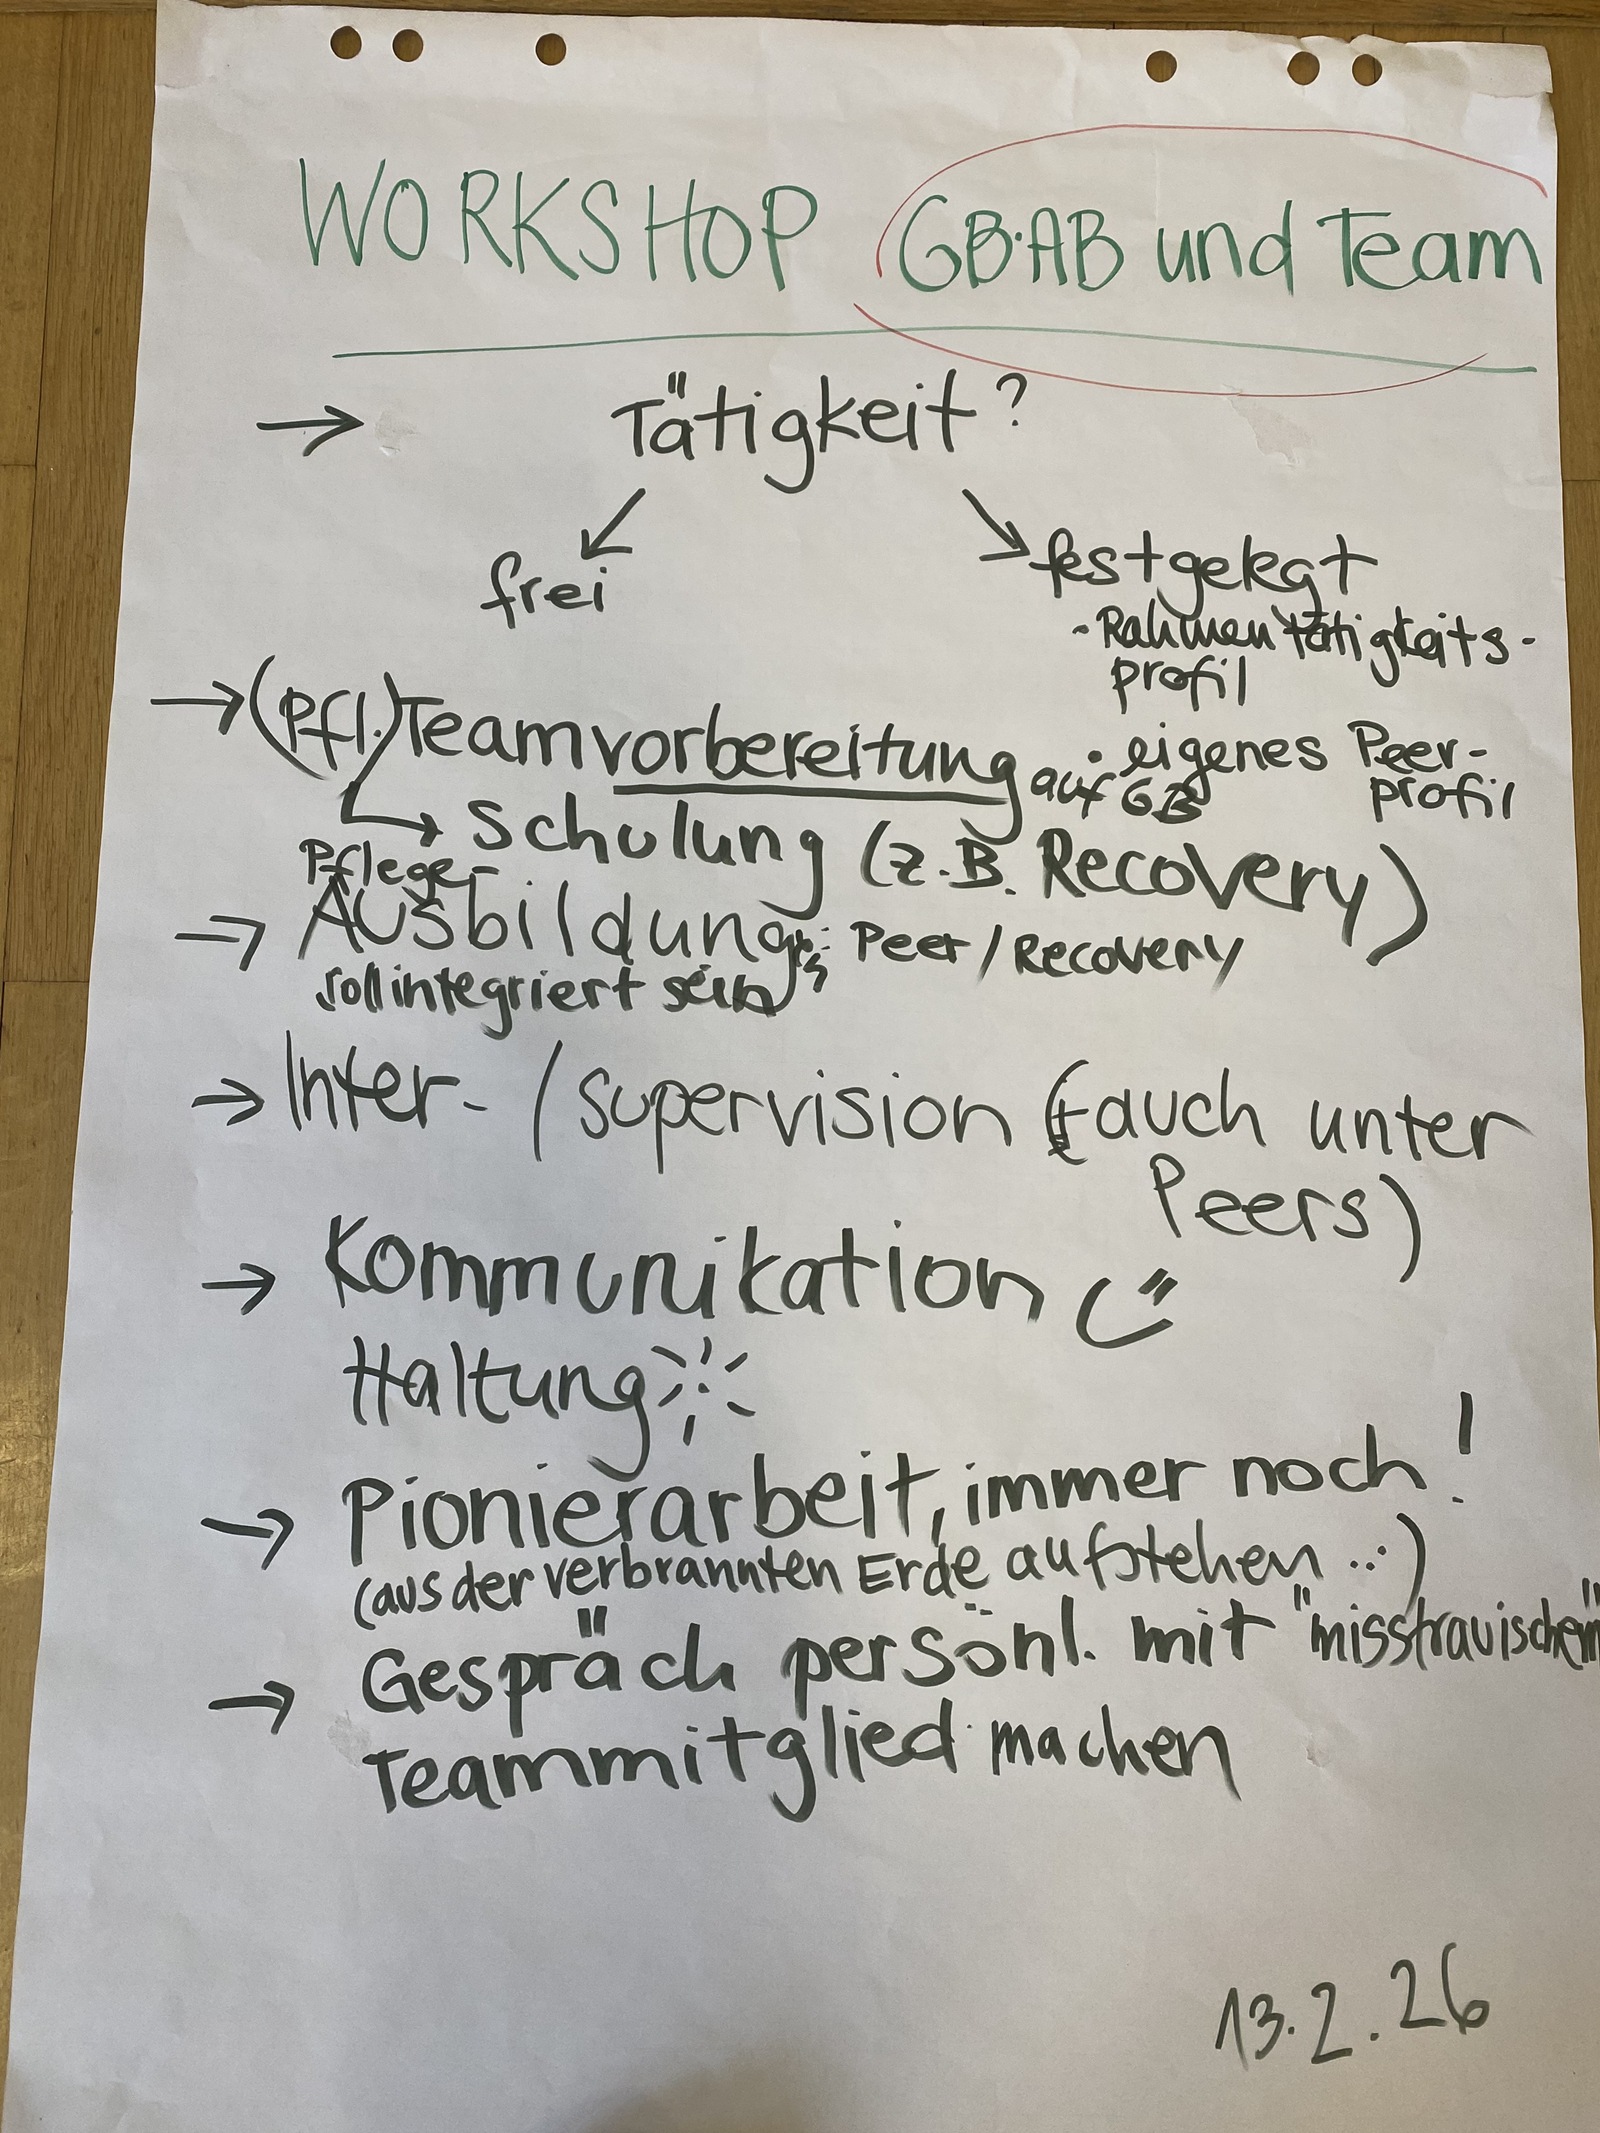 WORKSHOP GB·AB und Team
→ Tätigkeit?
frei
festgelegt
- Rahmentätigkeits-
profil
→ (Pfl.) Teamvorbereitung auf GB
• eigenes Peer-
profil
→ Schulung (z.B. Recovery)
Pflege-
→ Ausbildung: Peer / Recovery
soll integriert sein
→ Inter- / Supervision (+ auch unter
Peers)
→ Kommunikation
Haltung
→ Pionierarbeit, immer noch!
(aus der verbrannten Erde aufstehen ..)
→ Gespräch persönl. mit "misstrauischem"
Teammitglied machen
13.2.26